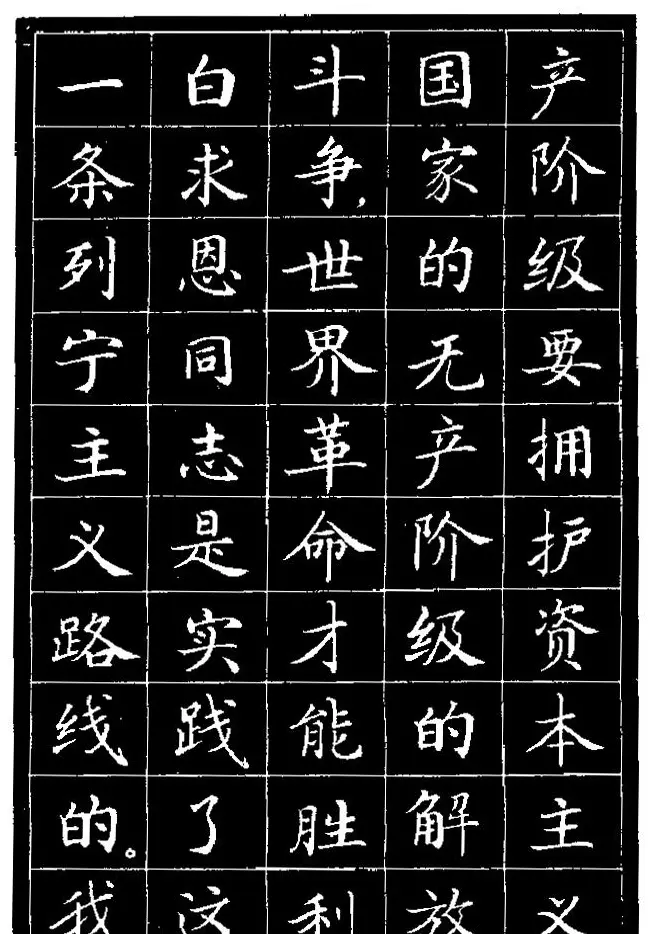 产阶级要拥护资本主义
国家的无产阶级的解放
斗争，世界革命才能胜利
白求恩同志是实践了这
一条列宁主义路线的。我